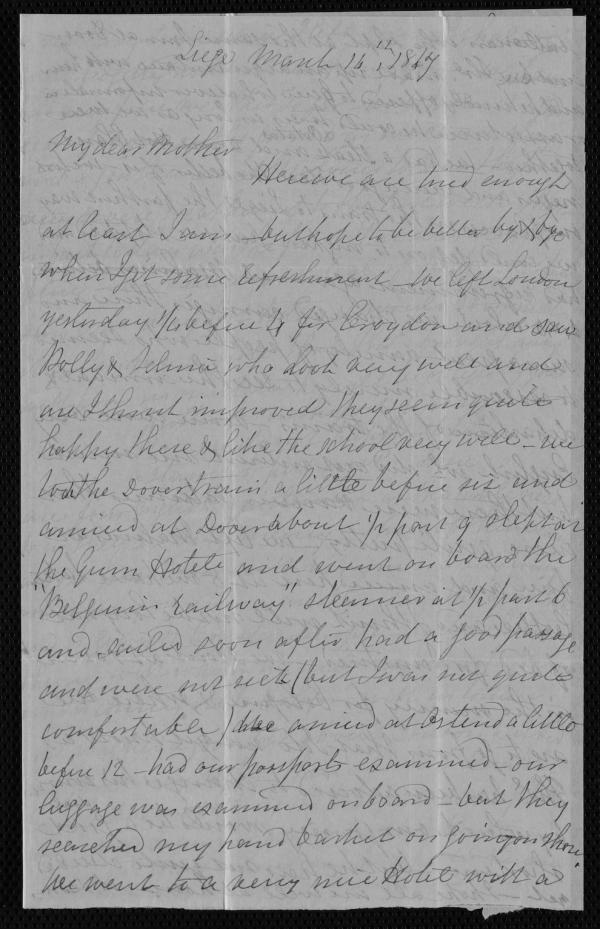 Liege March 16th 1847
My dear Mother
Here we are tired enough
at least I am - but hope to be better by & bye
when I get some refreshment - We left London
yesterday 1/4 before 4 for Croydon and saw
Polly & Selina who look very well and
are I think improved. They seem quite
happy there & like the school very well - we
took the Dover train a little before six and
arrived at Dover about 1/2 past 9 slept at
the Gun Hotel and went on board the
"Belguim railway" steamer at 1/2 past 6
and sailed soon after had a good passage
and were not sick (but I was not quite
comfortable) We arrived at Ostend a little
before 12 - had our passports examined - our
luggage was examined on board - but they
searched my hand basket on going on shore
We went to a very nice Hotel with a